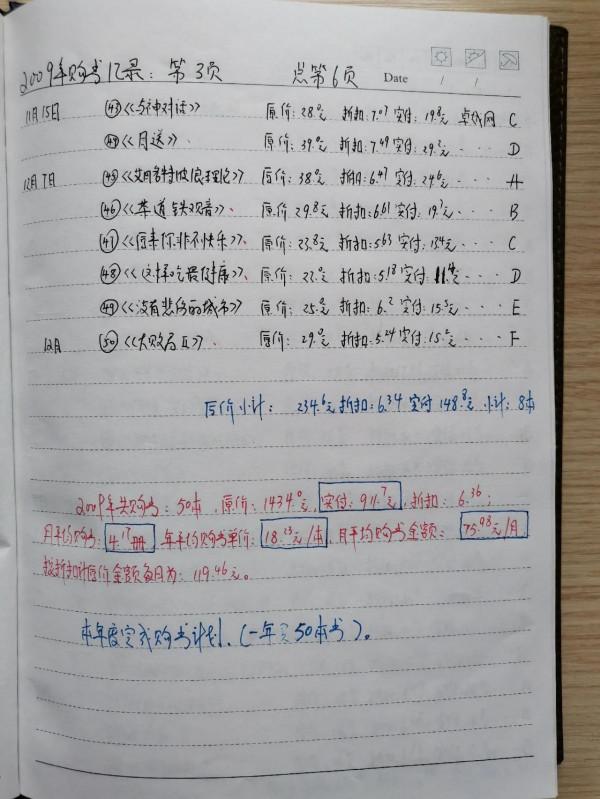 2009年购书记录：第3页 总第6页 Date / /
11月15日 ㊸《与神对话》 原价：28.0元 折扣：7.07 实付：19.8元 卓越网 C
㊹《目送》 原价：39.0元 折扣：7.49 实付：29.2元 ··· D
12月7日 ㊺《艾略特波浪理论》 原价：38.0元 折扣：6.47 实付：24.6元 ··· A
㊻《茶道 铁观音》、 原价 29.8元 折扣：6.61 实付：19.7元 ··· B
㊼《原来你非不快乐》、 原价：23.8元 折扣：5.63 实付：13.4元 ··· C
㊽《这样吃最健康》、 原价：22.0元 折扣：5.18 实付：11.4元 ··· D
㊾《没有悲伤的城市》 原价：25.0元 折扣：6.2 实付：15.5元 ··· E
12月 ㊿《大败局Ⅱ》、 原价：29.0元 折扣：5.24 实付：15.2元 ··· F
原价小计： 234.6元 折扣：6.34 实付 148.8元 小计：8本
2009年共购书：50本，原价：1434.0元，实付：911.7元，折扣：6.36；
月平均购书：4.17册，年平均购书单价：18.23元/本，月平均购书金额：75.98元/月
按折扣计原价金额每月为：119.46元。
本年度完成购书计划，（一年买50本书）。